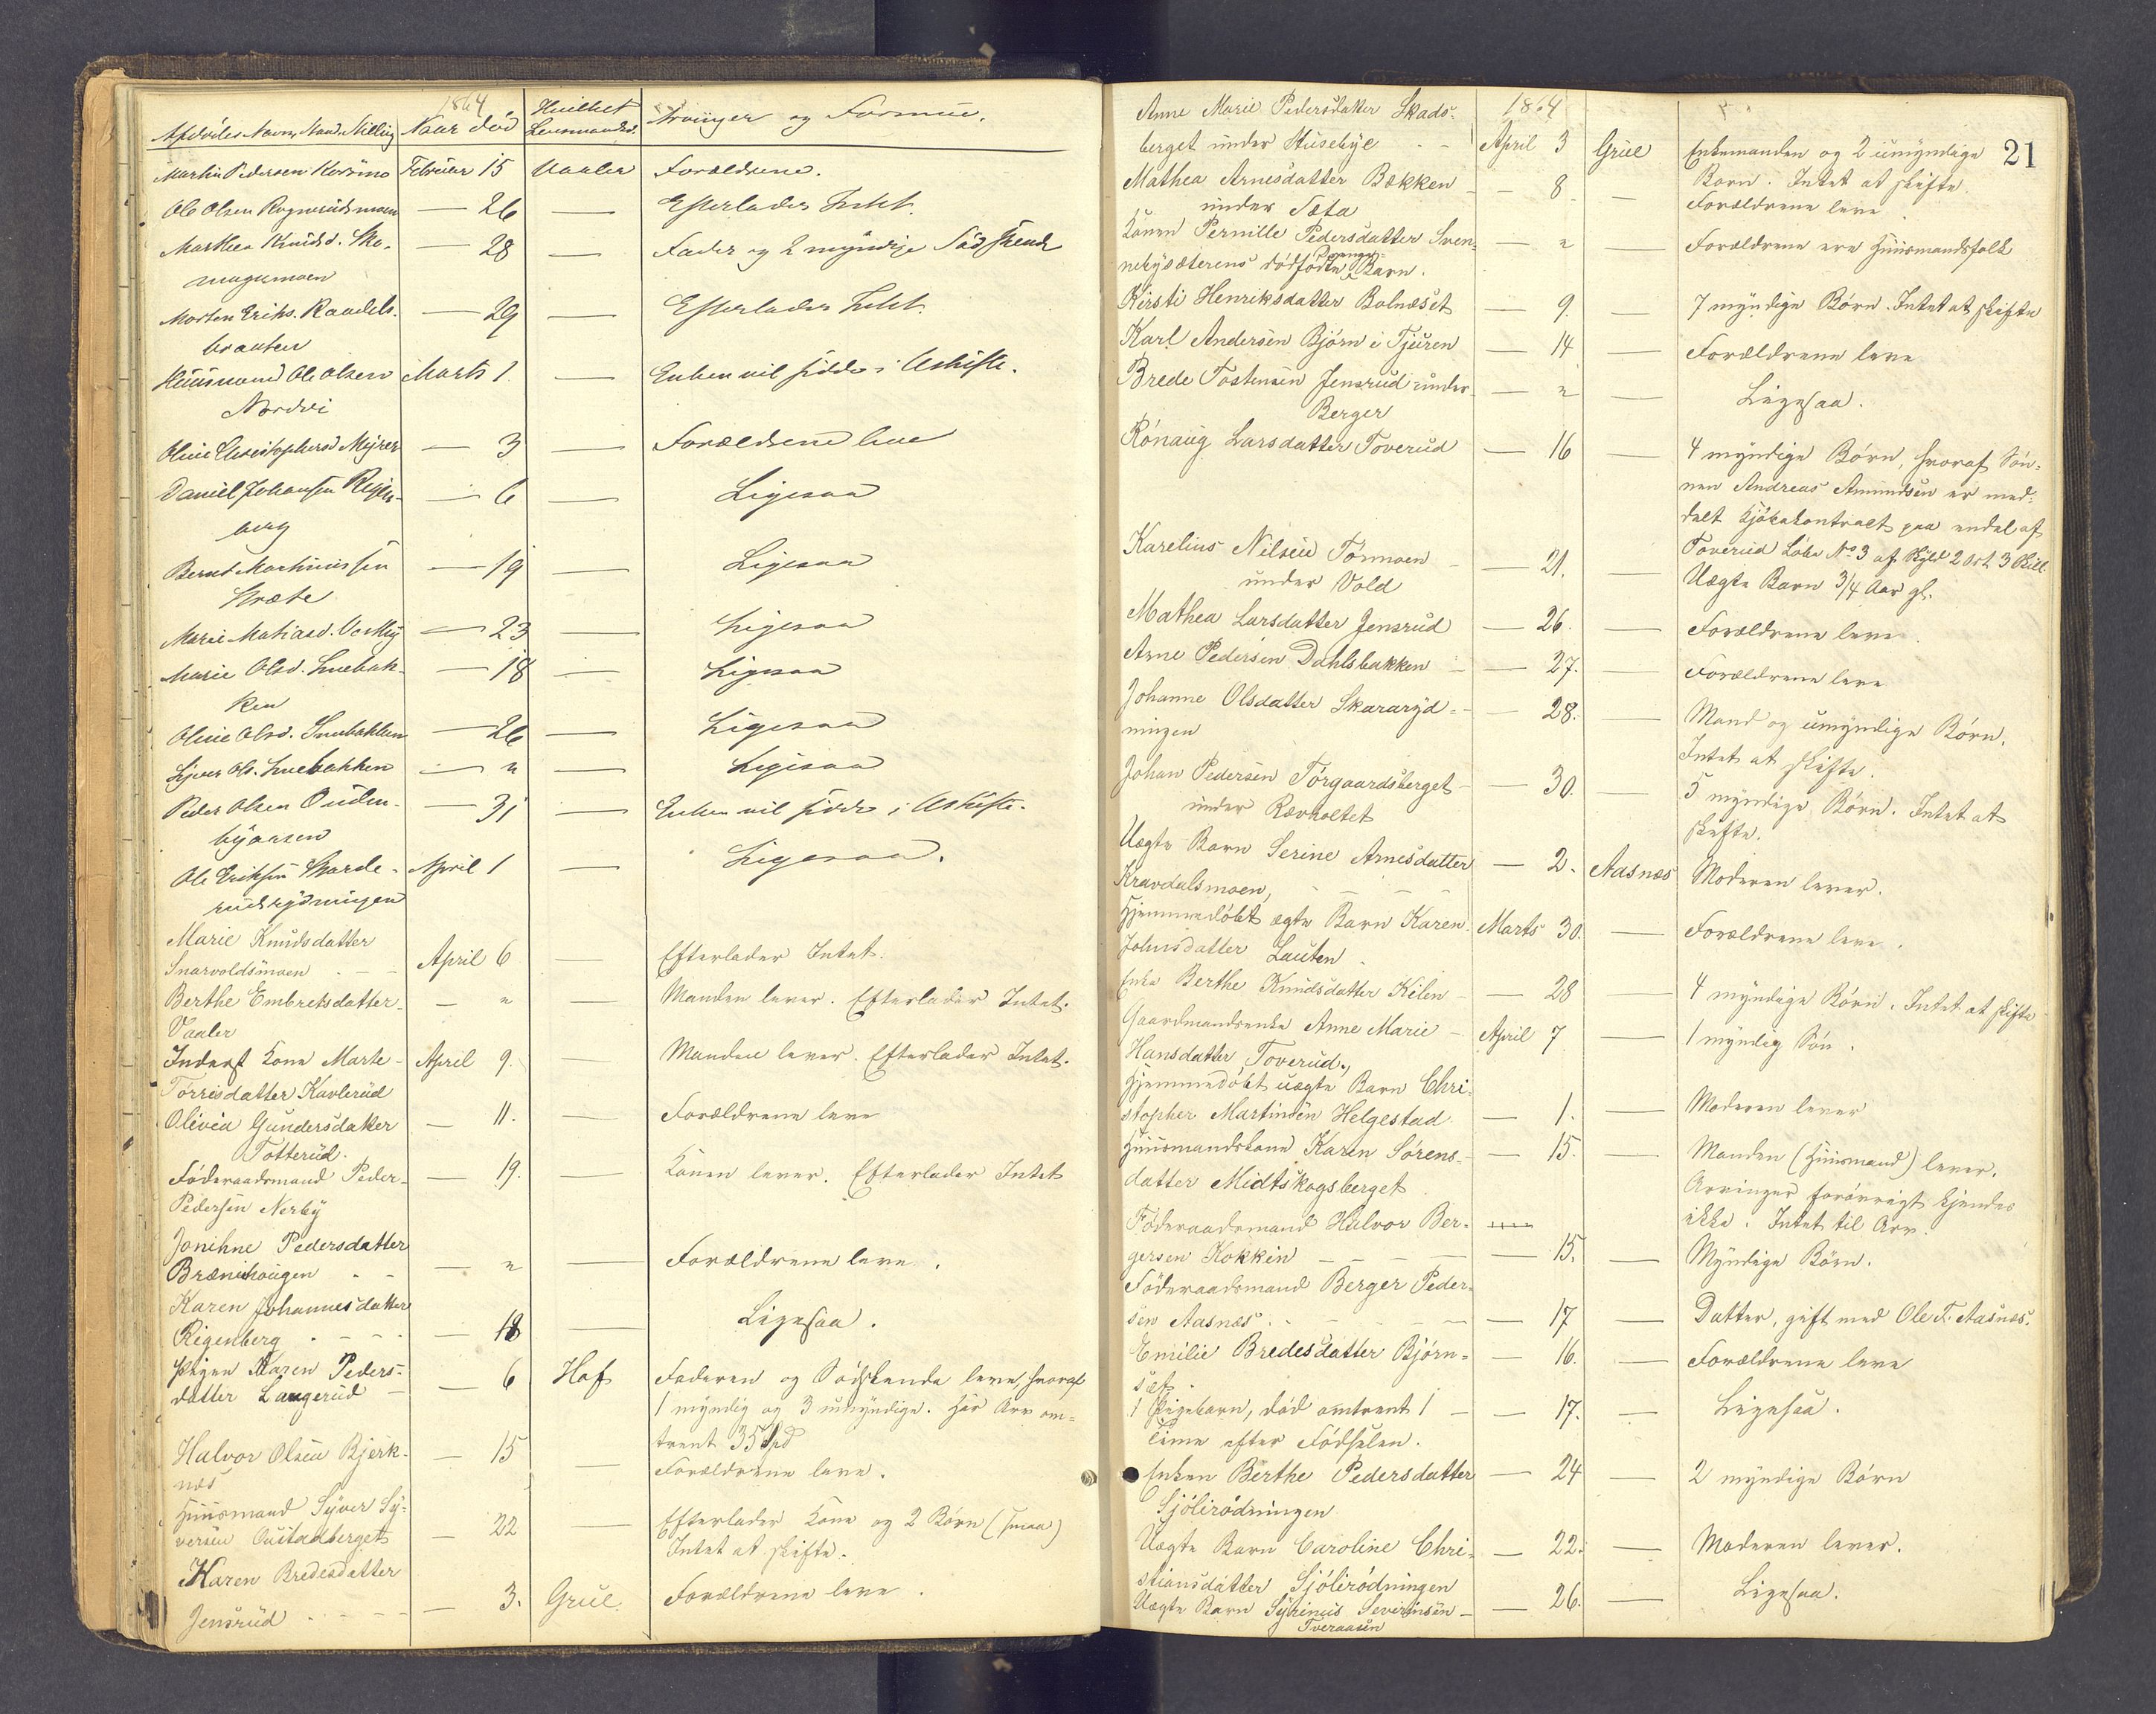 1864
Afdødes Navn, Stand, Stilling Naar død Hvilket Lensmandsd. Arvinger og Formue.
Martin Pedersen Korsmo Februar 15 Vaaler Forældrene.
Ole Olsen Rogneruds moen — 26 — Efterlader Intet.
Marthea Knudsd. Sko- — 28 — Fader og 2 myndige Sødskende
mager moen
Morten Eriks. Raadels- — 29 — Efterlader Intet.
braaten
Huusmand Ole Olsen Marts 1 — Enken vil sidde i Uskifte.
Nordvi
Oline Christophersd Myrer — 3 — Forældrene leve
Daniel Johansen Rigen- — 6 — Ligesaa
berg
Bernt Martinussen — 19 — Ligesaa
Kræte
Marie Matiasd. Vestby — 23 — Ligesaa
Marie Olsd. Snebak- — 18 — Ligesaa
ken
Oline Olsd. Snebakken — 26 — Ligesaa
Syver Ols. Snebakken — " — Ligesaa
Peder Olsen Ouden- — 31 — Enken vil sidde i Uskifte.
byaasen
Ole Eriksen Skarde- April 1 — Ligesaa.
rudsrydningen
Marie Knudsdatter
Snarvoldsmoen - - - April 6 — Efterlader Intet.
Berthe Embretsdatter — " — Manden lever. Efterlader Intet.
Vaaler
Inderst Kone Marte - April 9. — Manden lever. Efterlader Intet.
Torrisdatter Kavlerud
Olivia Gundersdatter — 11. — Forældrene leve
Totterud.
Føderaadsmand Peder — 19. — Konen lever. Efterlader Intet
Pedersen Nerby
Jonihne Pedersdatter
Brænihougen - - — " — Forældrene leve.
Karen Johannesdatter
Rigenberg - - - - — 18 — Ligesaa.
Pigen Karen Peders- — 6 Hof Faderen og Sødskende leve, hvoraf
datter Langerud — 1 myndig og 3 umyndige. Har Arv om-
trent 35 Spd
Halvor Olsen Bjerk- — 15 — Forældrene leve.
næs
Huusmand Syver Sy-
versen Oustadberget — 22 — Efterlader Kone og 2 Børn (smaa)
Intet at skifte.
Karen Bredesdatter
Jensrud - - - - — 3. Grue Forældrene leve.
21
Anne Marie Pedersdatter Skads- 1864
berget under Husebye - - April 3 Grue Enkemanden og 2 umyndige
Børn. Intet at skifte.
Mathea Arnesdatter Bækken — 8 — Forældrene leve
under Sæta
Konen Pernille Pedersdatter Sven- — " — Forældrene ere Huusmandsfolk
nebysæterens dødfødte Drenge Barn.
Kirsti Henriksdatter Bolnæset — 9. — 7 myndige Børn. Intet at skifte
Karl Andersen Bjørn i Tjuren — 14 — Forældrene leve
Brede Tostensen Jensrud under — " — Ligesaa.
Berger
Rønaug Larsdatter Toverud — 16 — 4 myndige Børn, hvoraf Søn-
nen Andreas Amundsen er med-
delt Kjøbekontract paa endel af
Toverud Løbe No 3 af Skyld 2 Ort 3 Skill.
Karelius Nilsen Tørmoen — 21. — Uægte Barn 3/4 Aar gl.
under Vold
Mathea Larsdatter Jensrud — 26. — Forældrene leve.
Arne Pedersen Dahlsbakken — 27. — Forældrene leve
Johanne Olsdatter Skararyd- — 28. — Mand og umyndige Børn.
ningen Intet at skifte.
Johan Pedersen Torgaardsberget — 30. — 5 myndige Børn. Intet at
under Rævholtet skifte.
Uægte Barn Serine Arnesdatter — 2. Aasnæs Moderen lever.
Kravdalsmoen, - - - -
Hjemmedøbt ægte Barn Karen Marts 30. — Forældrene leve.
Johnsdatter Lauten -
Enke Berthe Knudsdatter Kilen — 28 — 4 myndige Børn. Intet at skifte
Gaardmandsenke Anne Marie — April 7 — 1 myndig Søn.
Hansdatter Toverud.,
Hjemmedøbt uægte Barn Chri-
stopher Martinsen Helgestad — 1. — Moderen lever
Huusmandskone Karen Sørens- — 15. — Manden (Huusmand) lever.
datter Midtskogsberget Arvinger forøvrigt kjendes
ikke. Intet til Arv.
Føderaadsmand Halvor Ber-
gersen Kokkin — — — — 15. — Myndige Børn.
Føderaadsmand Berger Peder-
sen Aasnæs. - - - — 17 — Datter, gift med Ole T. Aasnæs.
Emilie Bredesdatter Bjørn- — 16. — Forældrene leve
sæt.
1 Pigebarn, død omtrent 1 — — 17. — Ligesaa.
Time efter Fødselen.
Enken Berthe Pedersdatter — 24 — 2 myndige Børn
Sjølirødningen
Uægte Barn Caroline Chri- — 22. — Moderen lever.
stiansdatter Sjølirødningen
Uægte Barn Syrinus Severinsen — — 26. — Ligesaa.
Tveraasen